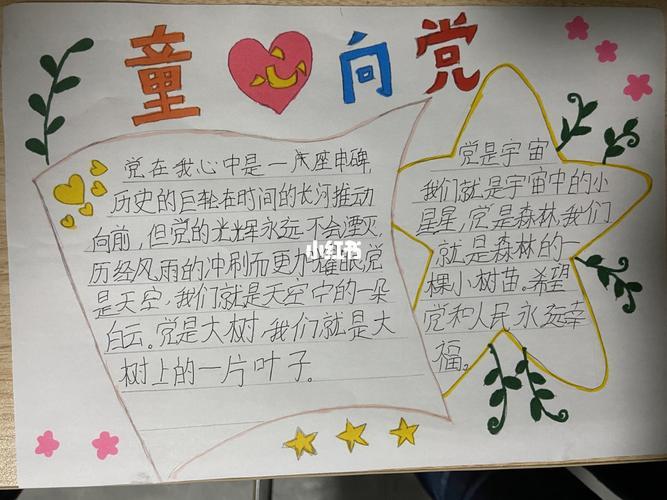 童心向党
党在我心中是一座丰碑,
历史的巨轮在时间的长河推动
向前,但党的光辉永远不会湮灭.
历经风雨的冲刷而更加耀眼党
是天空,我们就是天空中的一朵
白云。党是大树,我们就是大
树上的一片叶子。
党是宇宙
我们就是宇宙中的小
星星,党是森林,我们
就是森林的一
棵小树苗。希望
党和人民永远幸
福。
小红书